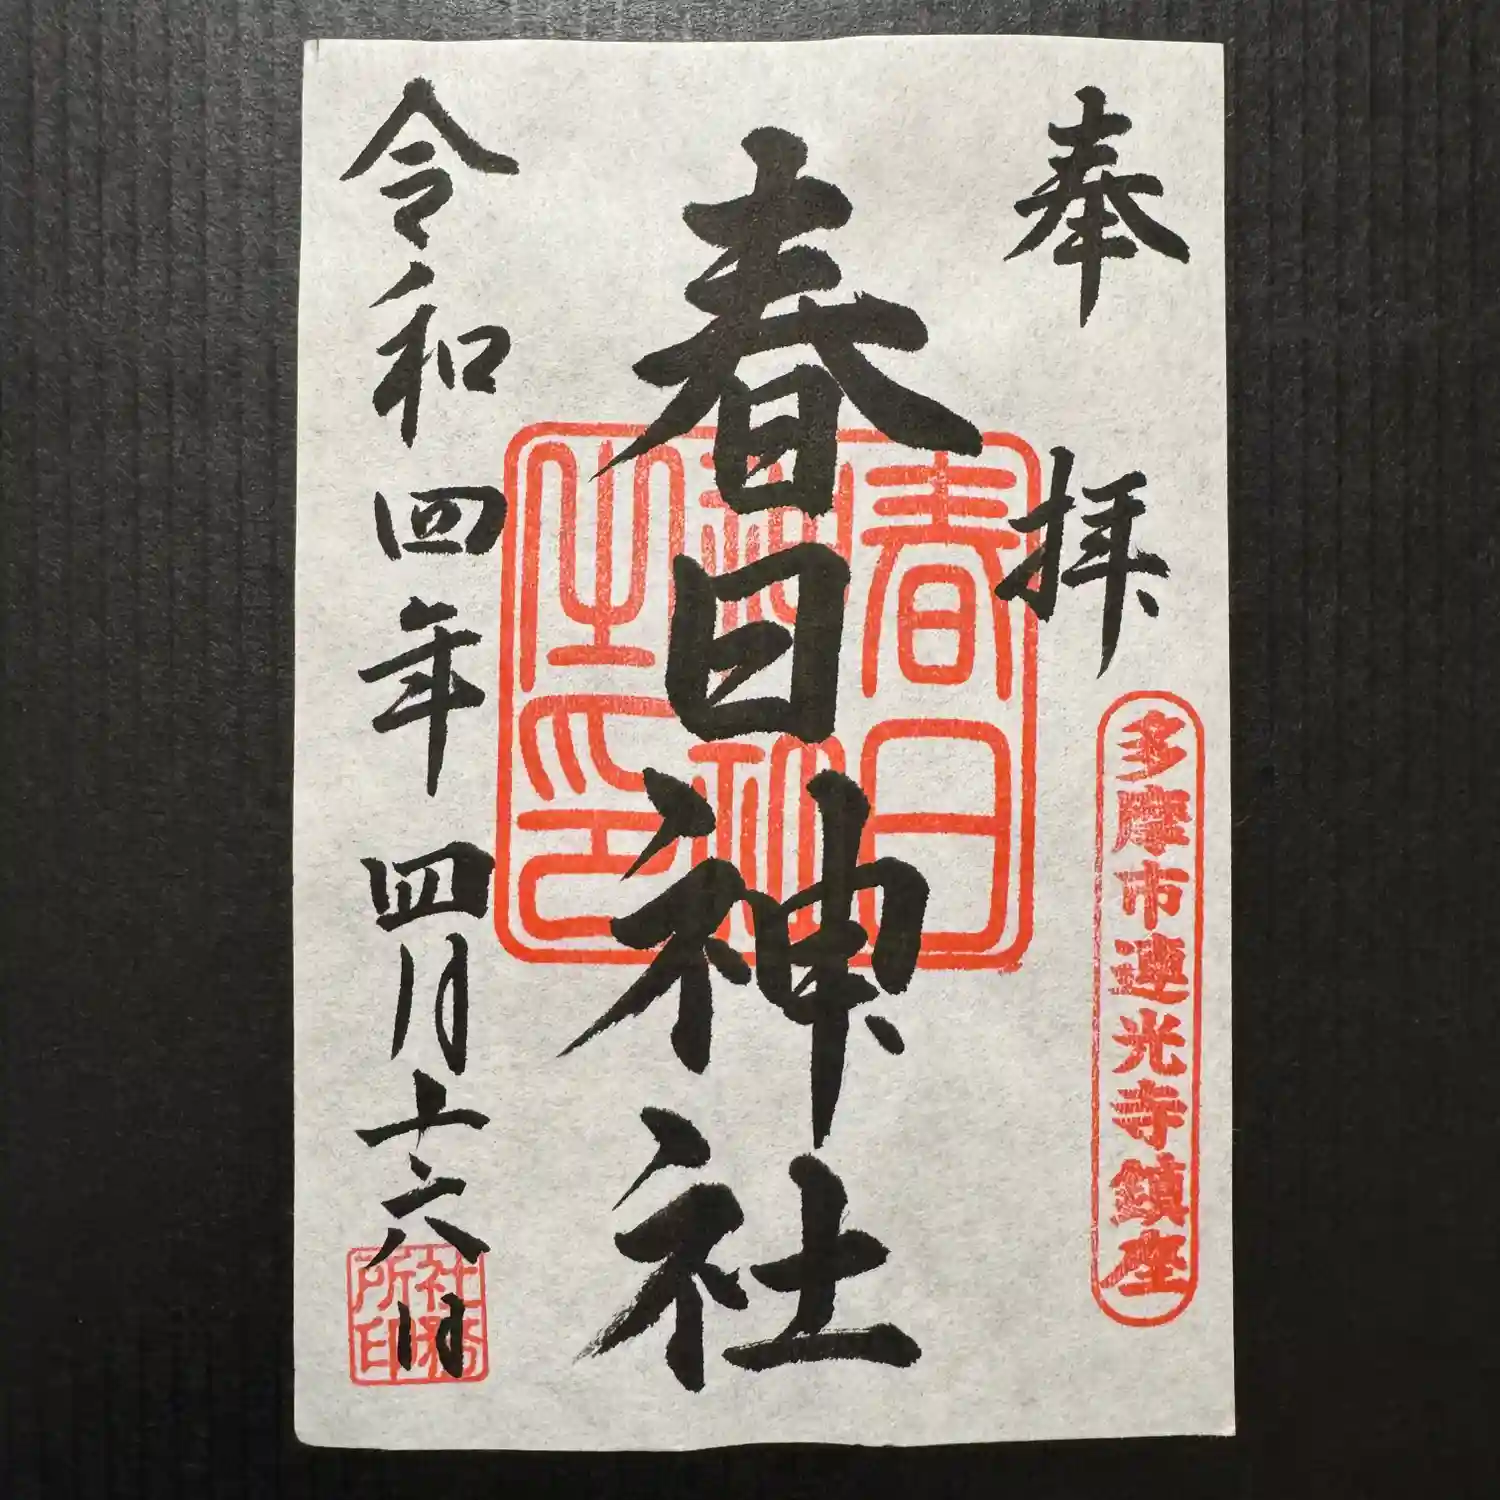 奉拝
多摩市連光寺鎮座
春日神社
春日
神社
之印
令和四年四月十六日
社務
所印